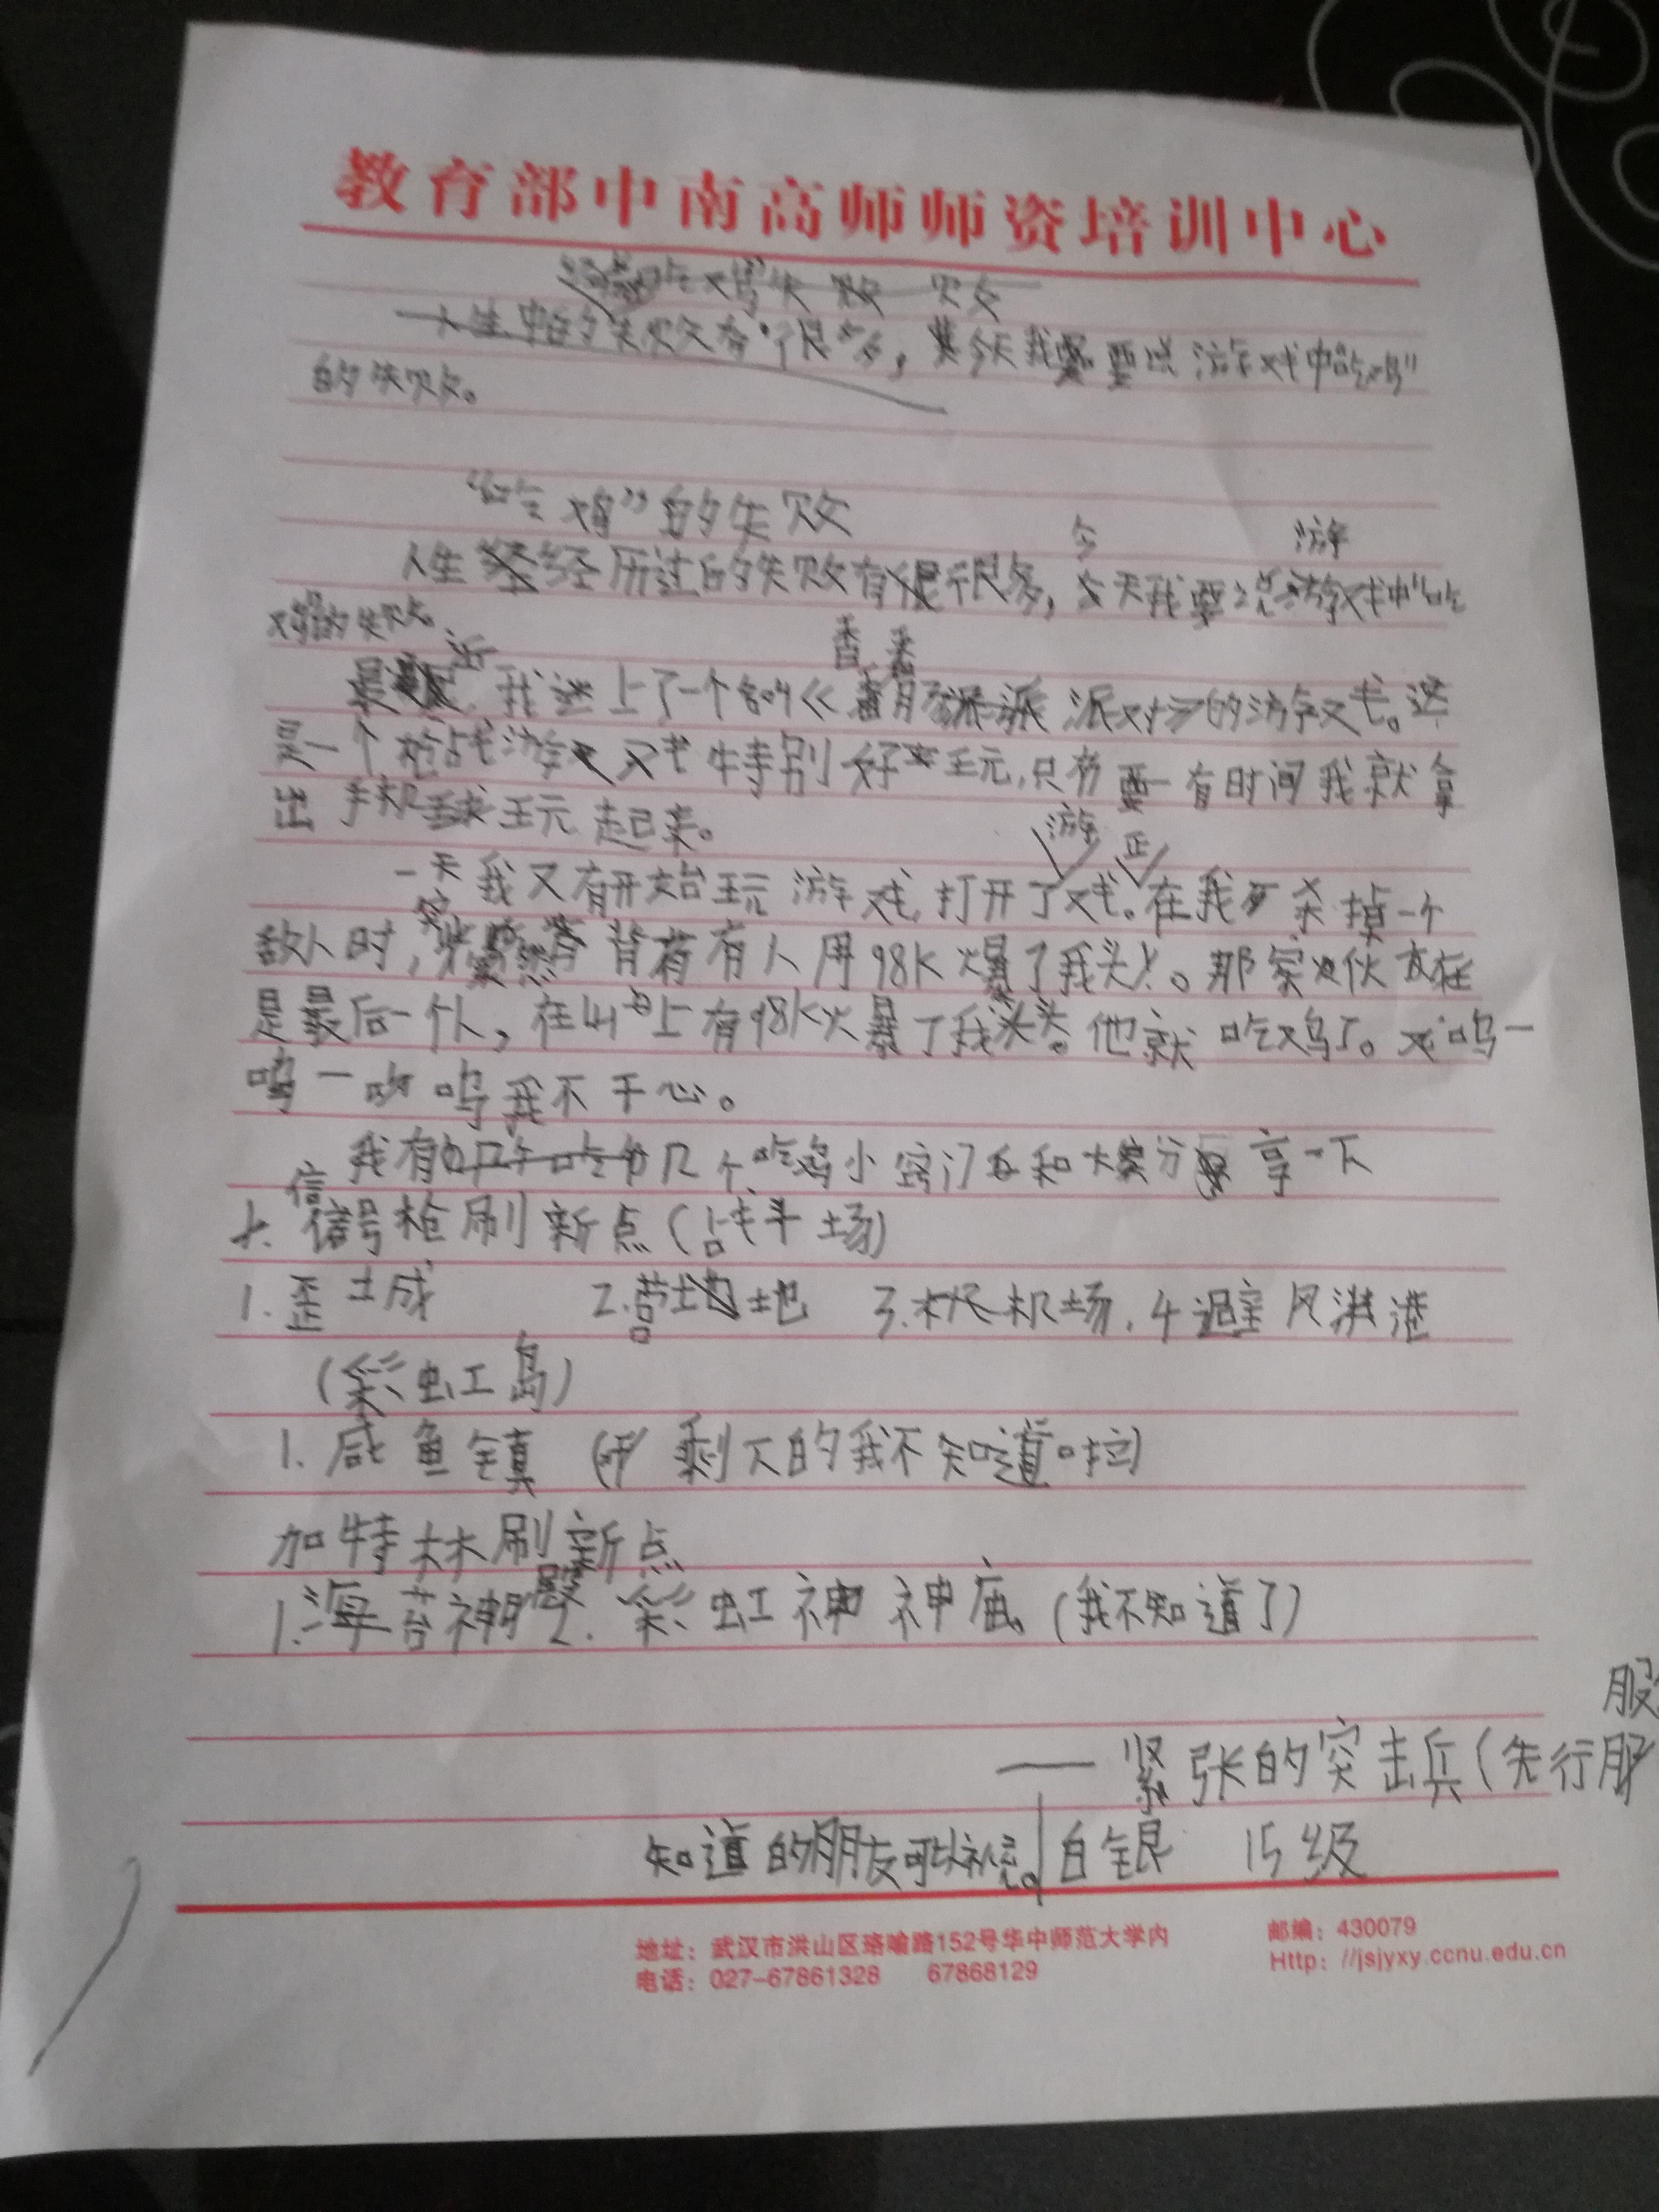 教育部中南高师师资培训中心
吃鸡失败 失败
人生中的失败有很多，今天我要说游戏中吃鸡"
的失败。
"吃鸡"的失败
今 游
人生经历过的失败有很多，今天我要说游戏中"吃
鸡的失败。
近 香 蕉
最 我迷上了一个名叫《香肠派派对》的游戏。这
是一个枪战游戏特别好玩，只要一有时间我就拿
出手机玩起来。
游 正
一天我又开始玩游戏，打开了戏。在我杀掉一个
突
敌人时，然背有人用98K爆了我头。那家伙
是最后一个人，在山上有98K爆了我头。他就吃鸡了。呜一
呜一呜我不干心。
我有几个吃鸡小窍门和大家分享一下
信
信号枪刷新点（战斗场）
1.歪土成 2.营地 3.机场．4避风港
（彩虹岛）
1.咸鱼镇（剩下的我不知道啦）
加特林刷新点
殿
1.海苔神 2.彩虹神庙。（我不知道了）
服
——紧张的突击兵（先行服
知道的朋友可以补充。 白银 15级
地址：武汉市洪山区珞喻路152号华中师范大学内 邮编：430079
电话：027-67861328 67868129 Http：//jsjyxy.ccnu.edu.cn